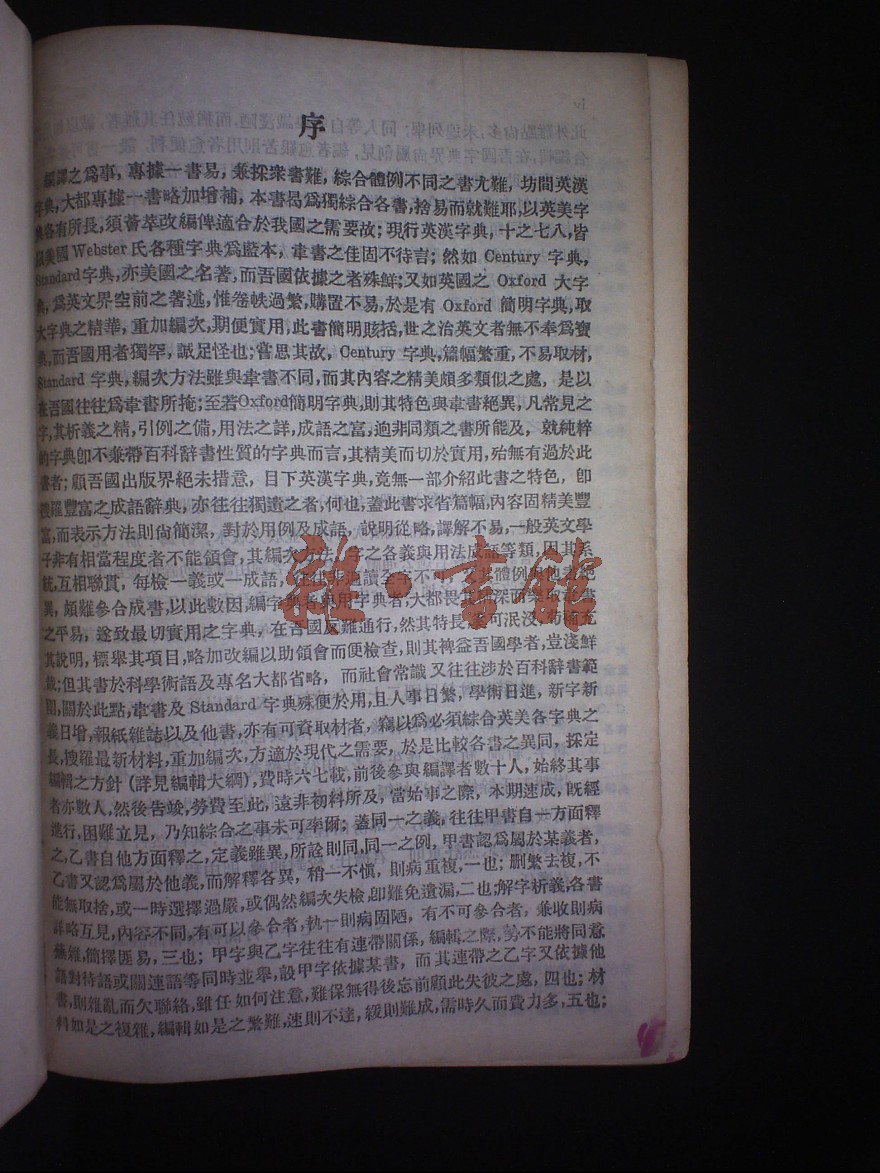 序
編譯之爲事，專據一書易，兼採衆書難，綜合體例不同之書尤難，坊間英漢
字典，大都專據一書略加增補，本書曷爲獨綜合各書，捨易而就難耶，以英美字
典各有所長，須薈萃改編俾適合於我國之需要故；現行英漢字典，十之七八，皆
以美國 Webster 氏各種字典爲藍本，韋書之佳固不待言；然如 Century 字典，
Standard 字典，亦美國之名著，而吾國依據之者殊鮮；又如英國之 Oxford 大字
典，爲英文界空前之著述，惟卷帙過繁，購置不易，於是有 Oxford 簡明字典，取
大字典之精華，重加編次，期便實用，此書簡明賅括，世之治英文者無不奉爲寶
典，而吾國用者獨罕，誠足怪也；嘗思其故，Century 字典，篇幅繁重，不易取材，
Standard 字典，編次方法雖與韋書不同，而其內容之精美頗多類似之處，是以
在吾國往往爲韋書所掩；至若Oxford簡明字典，則其特色與韋書絕異，凡常見之
字，其析義之精，引例之備，用法之詳，成語之富，迥非同類之書所能及，就純粹
的字典卽不兼帶百科辭書性質的字典而言，其精美而切於實用，殆無有過於此
書者；顧吾國出版界絕未措意，目下英漢字典，竟無一部介紹此書之特色，卽
搜羅豐富之成語辭典，亦往往獨遺之者，何也，蓋此書求省篇幅，內容固精美豐
富，而表示方法則尙簡潔，對於用例及成語，說明從略，譯解不易，一般英文學
子非有相當程度者不能領會，其編次方法，字之各義與用法成語等類，因其系
統，互相聯貫，每檢一義或一成語，往往非通讀全字不 其體例與他書絕
異，頗難參合成書，以此數因，編字典者與用字典者，大都畏其 深而樂 書
之平易，遂致最切實用之字典，在吾國反難通行，然其特長 可泯沒，苟補充
其說明，標舉其項目，略加改編以助領會而便檢查，則其裨益吾國學者，豈淺鮮
哉；但其書於科學術語及專名大都省略，而社會常識又往往涉於百科辭書範
圍，關於此點，韋書及 Standard 字典殊便於用，且人事日繁，學術日進，新字新
義日增，報紙雜誌以及他書，亦有可資取材者，竊以爲必須綜合英美各字典之
長，搜羅最新材料，重加編次，方適於現代之需要，於是比較各書之異同，採定
編輯之方針（詳見編輯大綱），費時六七載，前後參與編譯者數十人，始終其事
者亦數人，然後告竣，勞費至此，遠非初料所及，當始事之際，本期速成，旣經
進行，困難立見，乃知綜合之事未可率爾；蓋同一之義，往往甲書自一方面釋
之，乙書自他方面釋之，定義雖異，所詮則同，同一之例，甲書認爲屬於某義者，
乙書又認爲屬於他義，而解釋各異，稍一不愼，則病重複，一也；刪繁去複，不
能無取捨，或一時選擇過嚴，或偶然編次失檢，卽難免遺漏，二也；解字析義，各書
詳略互見，內容不同，有可以參合者，執一則病固陋，有不可參合者，兼收則病
蕪雜，簡擇匪易，三也；甲字與乙字往往有連帶關係，編輯之際，勢不能將同意
語對待語或關連語等同時並舉，設甲字依據某書，而其連帶之乙字又依據他
書，則雜亂而欠聯絡，雖任如何注意，難保無得後忘前顧此失彼之處，四也；材
料如是之複雜，編輯如是之繁難，速則不達，緩則難成，需時久而費力多，五也；
雜·書館
iv